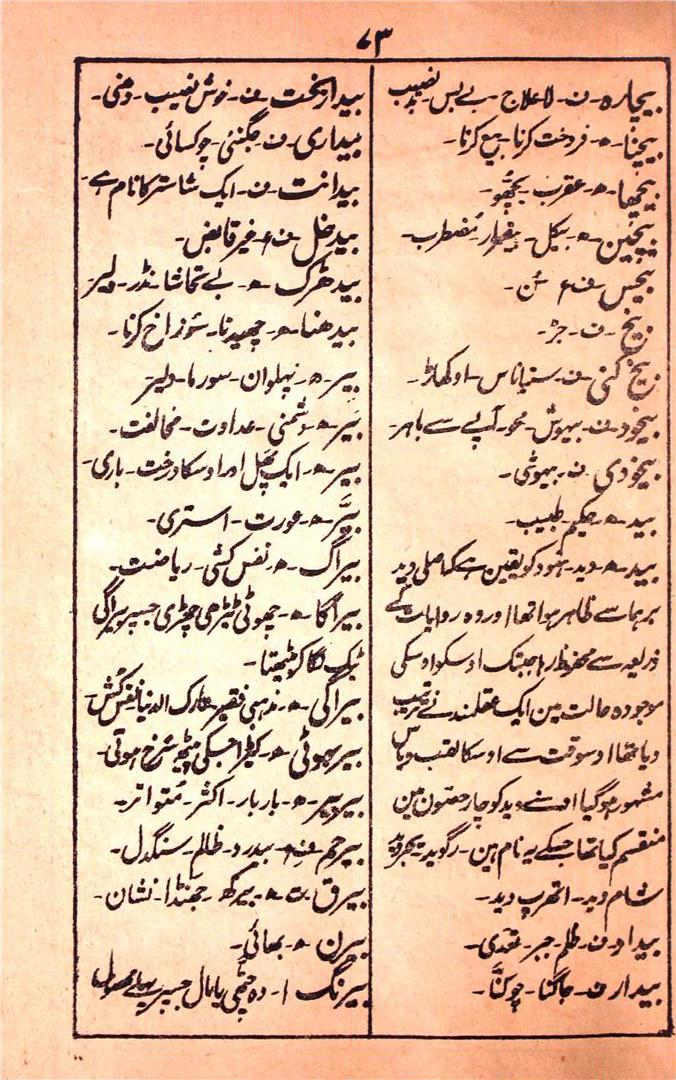 ۷۳
بیچارہ۔ ف۔ لاعلاج۔ بے بس۔ بدنصیب
بیچنا۔ ھ۔ فروخت کرنا۔ بیع کرنا۔
بیچھا۔ ھ۔ عقرب۔ بچھو۔
بیچین۔ ھ۔ بیکل۔ بیقرار۔ مضطرب۔
بیحس۔ ف ع۔ سُن۔
بیخ۔ ف۔ جڑ۔
بیخ کنی۔ ف۔ ستیاناس۔ اوکھاڑ۔
بیخود۔ ف۔ بیہوش۔ محو۔ آپے سے باہر۔
بیخودی۔ ف۔ بیہوشی۔
بید۔ ھ۔ حکیم۔ طبیب۔
بید۔ ھ۔ وید۔ ہنود کو یقین ہے کہ اصلی وید
برہما سے ظاہر ہوا تھا اور وہ روایات کے
ذریعہ سے محفوظ رہا جبتک اوسکو اوسکی
موجودہ حالت مین ایک عقلمند نے ترتیب
دیا تھا اوسوقت سے اوسکا لقب ویاس
مشہور ہوگیا اوسنے وید کو چار حصون مین
منقسم کیا تھا جسکے یہ نام ہین۔ رگوید۔ یجروید
شام وید۔ اتھرب وید۔
بیداد۔ ف۔ ظلم۔ جبر۔ تعدی۔
بیدار۔ ف۔ جاگنا۔ چوکنّا۔
بیدار بخت۔ ف۔ خوش نصیب۔ دھنی۔
بیداری۔ ف۔ جگنئی۔ چوکسائی۔
بیدانت۔ ف۔ ایک شاستر کا نام ہے۔
بیدخل۔ ف ع۔ غیر قابض۔
بیدھڑک۔ ھ۔ بے تحاشا۔ نڈر۔ دلیر۔
بیدھنا۔ ھ۔ چھیدنا۔ سوراخ کرنا۔
بیر۔ ھ۔ پہلوان۔ سورما۔ دلیر
بَیر۔ ھ۔ دشمنی۔ عداوت۔ مخالفت۔
بیر۔ ھ۔ ایک پھل اور اوسکا درخت۔ باری۔
بیَّر۔ ھ۔ عورت۔ استری۔
بیراگ۔ ھ۔ نفس کشی۔ ریاضت۔
بیراگا۔ ھ۔ چھوٹی ٹیڑھی چھڑی جسپر بیراگی
ٹیک لگا کر بیٹھتا۔
بیراگی۔ ھ۔ مذہبی فقیر۔ تارک الدنیا۔ نفس کُش
بیر بہوٹی۔ ھ۔ کیڑا جسکی پیٹھ سُرخ ہوتی۔
بیر بیر۔ ھ۔ بار بار۔ اکثر۔ مُتواتر۔
بیرحم۔ ف ع۔ بیدرد۔ ظالم۔ سنگدل۔
بیرق۔ ت ھ۔ بیرکھ۔ جھنڈا۔ نشان۔
بیرن۔ ھ۔ بھائی۔
بیرنگ۔ ا۔ وہ چٹھی یا مال جسپر پہلے محصول